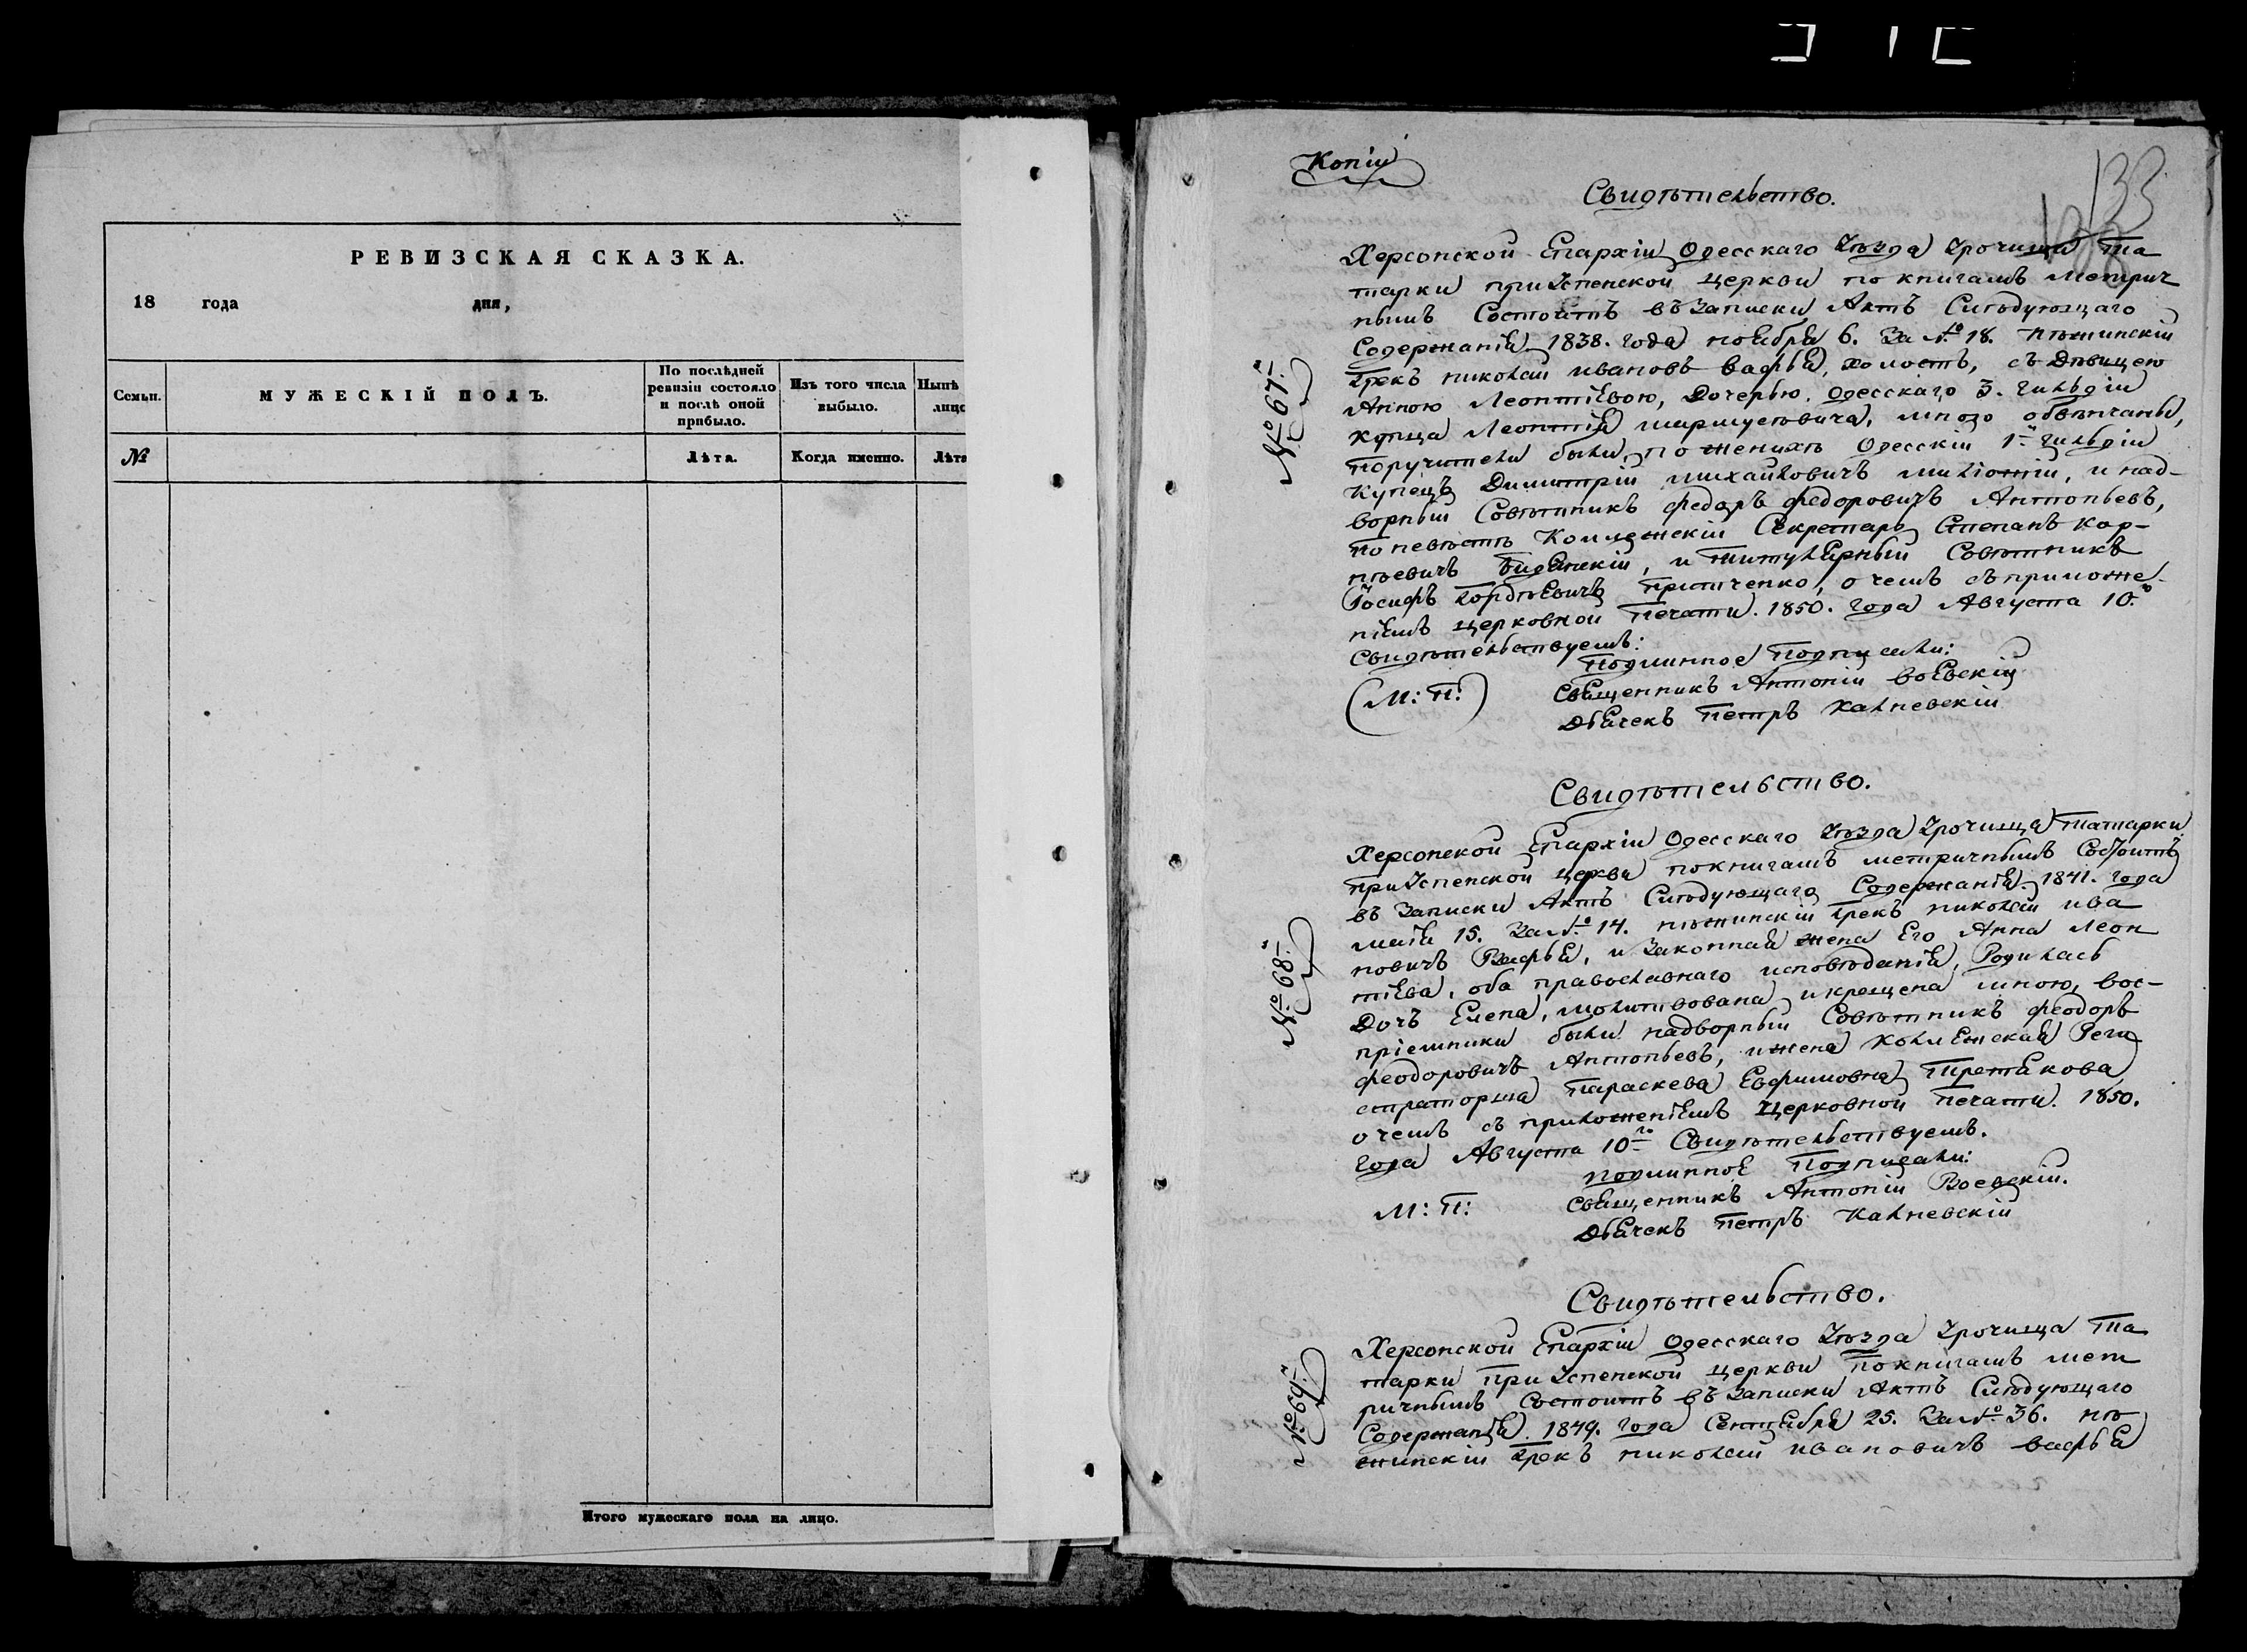 РЕВИЗСКАЯ СКАЗКА.
18 года дня,
Семьи. МУЖЕСКІЙ ПОЛЪ. По послѣдней ревизіи состояло и послѣ оной прибыло. Изъ того числа выбыло. Нынѣ лицо
№ Лѣта. Когда именно. Лѣта
Итого мужескаго пола на лицо.
Копіи
133
Свидѣтельство.
№ 67.
Херсонской Епархіи Одесскаго Уѣзда Урочища Та
тарки при Успенской церкви по книгамъ Метрич
нымъ Состоитъ въ Записки Актъ Слѣдующаго
Содержанія. 1838. года ноября 6. За № 18. Нѣжинскій
Грекъ николай ивановъ вафья, холостъ, съ Дѣвицею
Анною Леонтіевою, Дочерью Одесскаго 3. гильдіи
купца Леонтія мною обвѣнчаны,
поручители были, по женихѣ Одесскій 1й гильдіи
купецъ Димитрій михайловичъ и над-
ворный Совѣтникъ федоръ федоровичъ Антоньевъ,
по невѣстѣ Коллежскій Секретарь Степанъ Кар-
пѣевичъ и титулярный Совѣтникъ
Іосифъ Гордѣевичъ о чемъ съ приложе-
ніемъ церковной печати. 1850. года Августа 10.
Свидѣтельствуемъ:
Подлинное подписали:
(М: П:) Священникъ Антоній воевскій
Дьячекъ Петръ Кальневскій
Свидѣтельство.
№ 68.
Херсонской Епархіи Одесскаго Уѣзда Урочища татарки
при Успенской церкви по книгамъ метричнымъ Состоитъ
въ Записки Актъ Слѣдующаго Содержанія. 1841. года
маія 15. За № 14. нѣжинскій Грекъ николай ива
новичъ Вафья, и Законная жена Его Анна Леон
тіева, оба православнаго исповѣданія, Родилась
Дочь Елена, молитвована и крещена мною, вос-
пріемники были надворный Совѣтникъ феодоръ
феодоровичъ Антоньевъ, и жена Колежская Реги
страторша Параскева Евфимовна Третякова
о чемъ съ приложеніемъ Церковной печати. 1850.
года Августа 10го Свидѣтельствуемъ.
Подлинное Подписали:
М: П: Священникъ Антоній Воевскій.
Дьячекъ Петръ Кальневскій
Свидѣтельство.
№ 69.
Херсонской Епархіи Одесскаго Уѣзда Урочища Та
тарки при Успенской церкви По книгамъ мет
ричнымъ Состоитъ въ Записки Актъ Слѣдующаго
Содержанія. 1849. года Сентября 25. За № 36. нѣ
жинскій Грекъ николай ивановичъ вафья